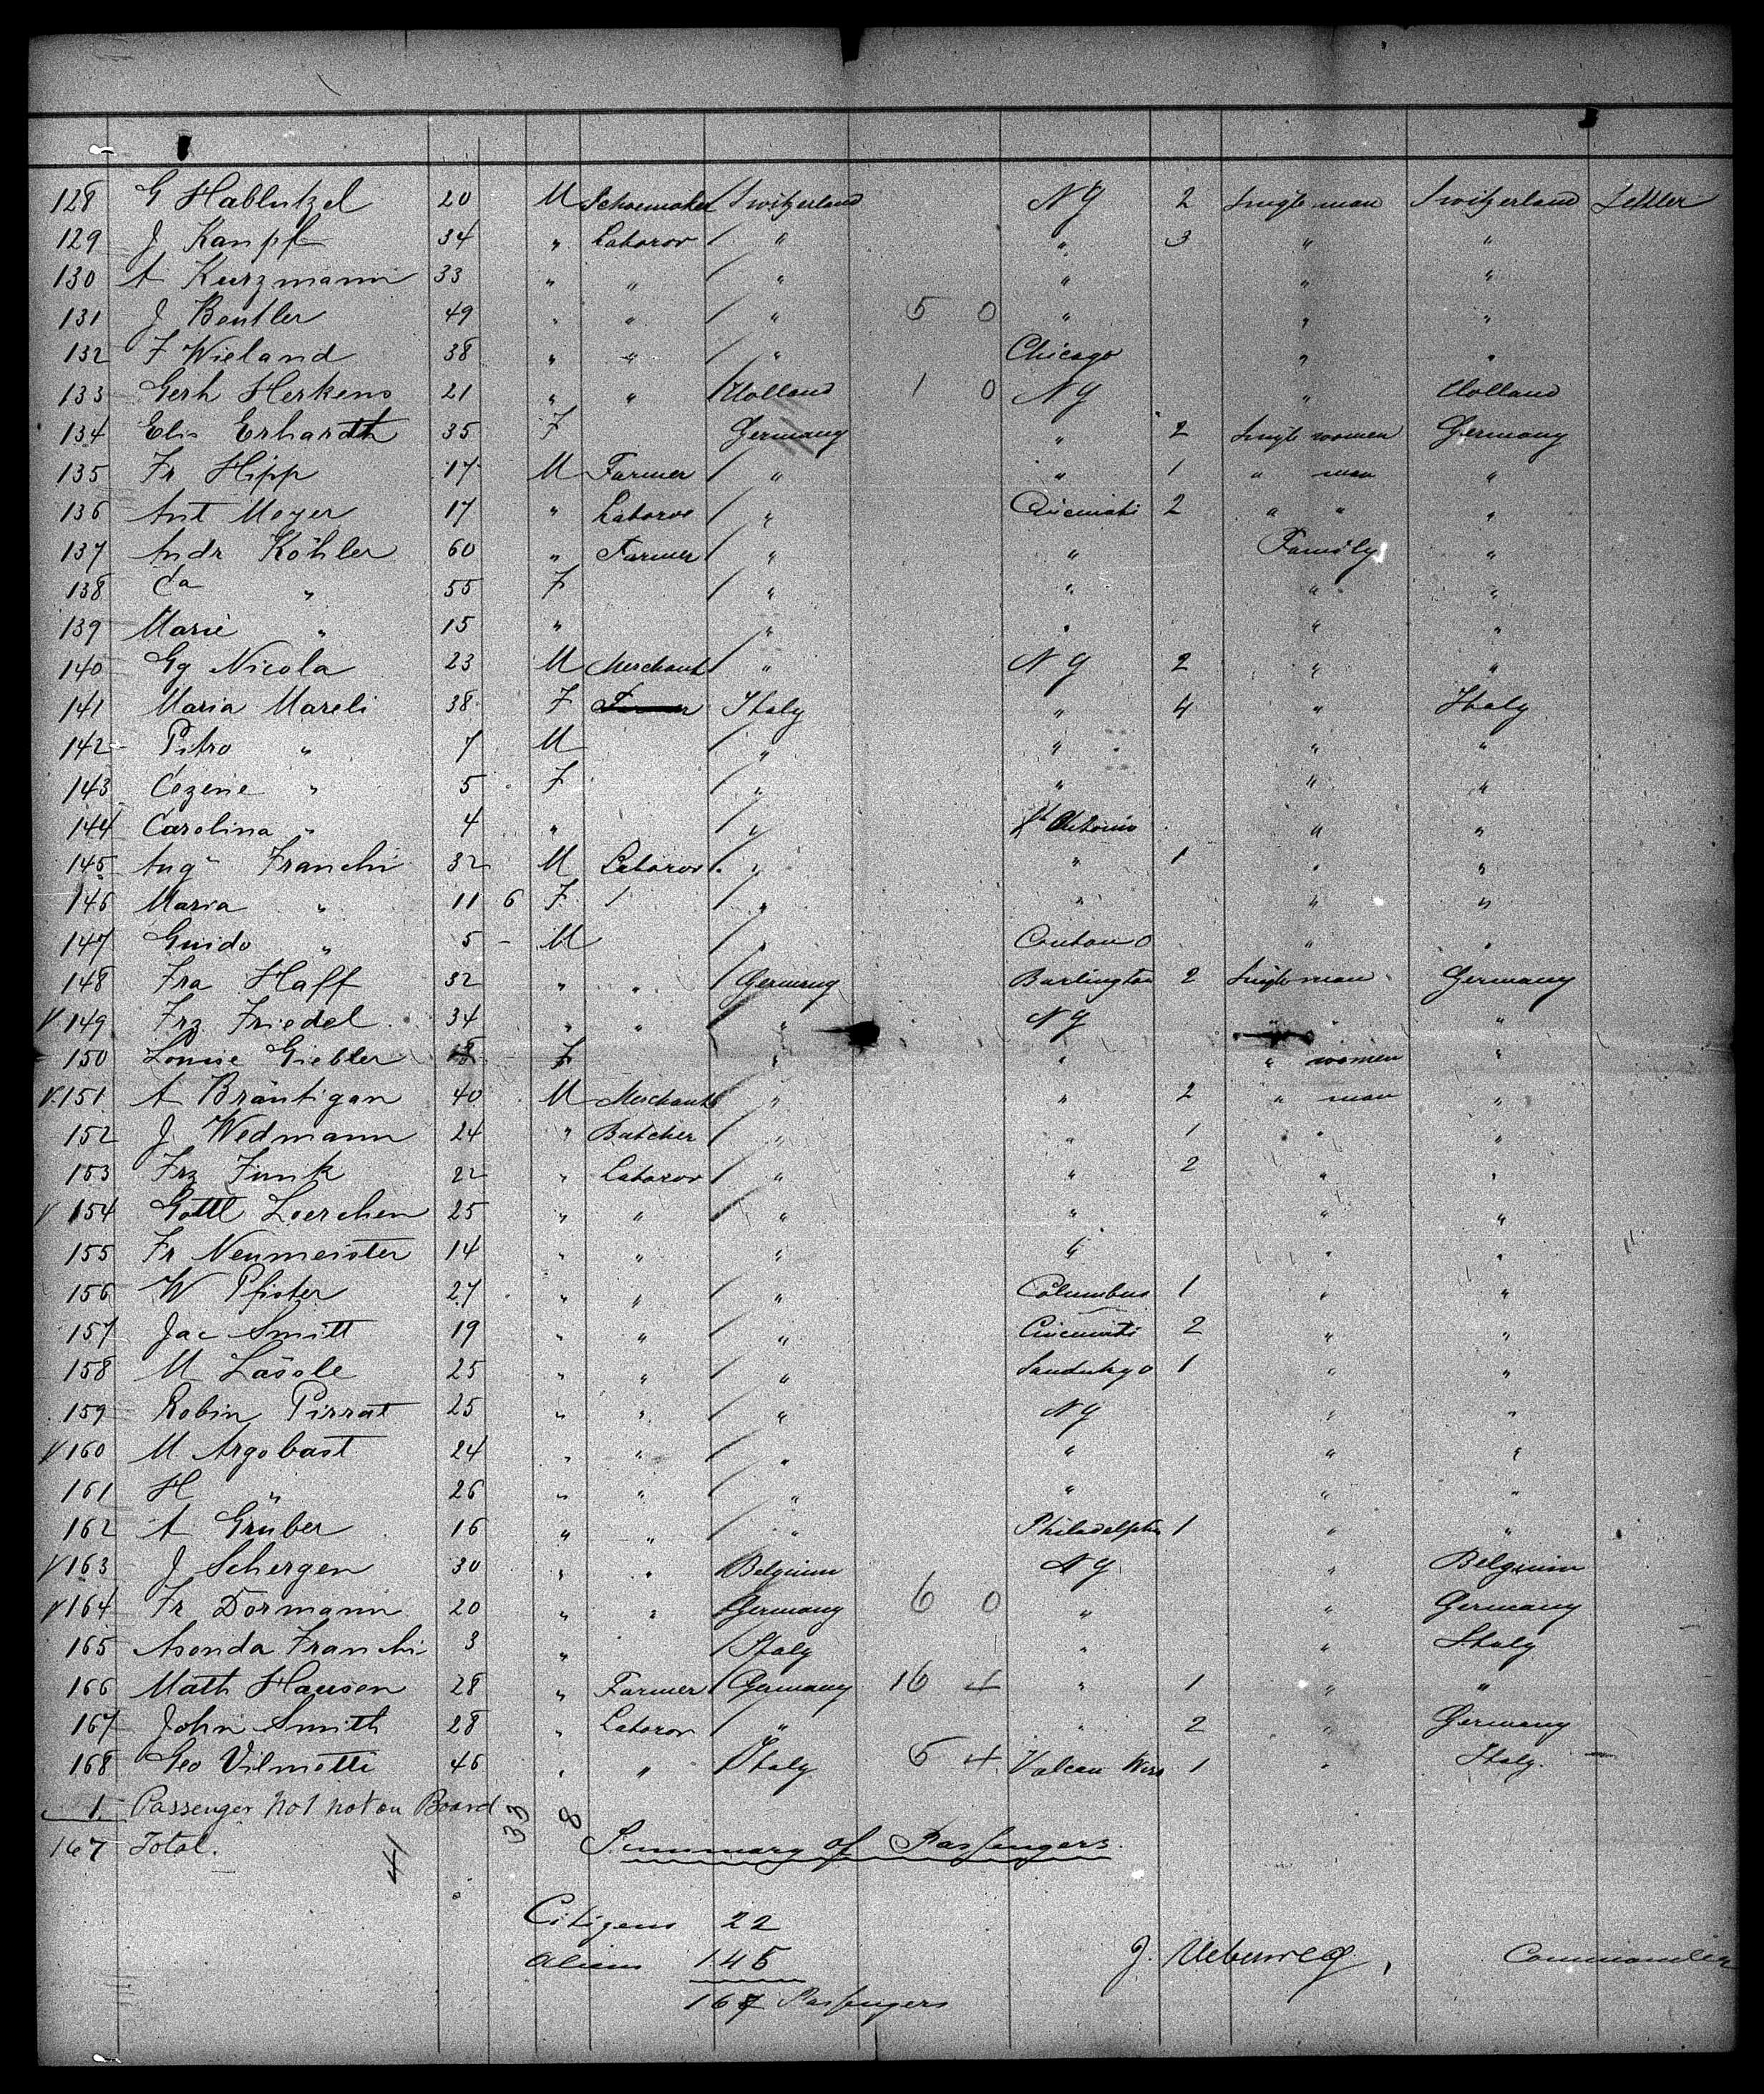 128 G Hablutzel 20 M Schoemaker / Switzerland NY 2 Single man Switzerland Settler
129 J Kampf 34 " Laboror / " " 3 " "
130 A Kurzmann 33 " " / " " " "
131 J Beutler 49 " " / " 5 0 " " "
132 F Wieland 38 " " / " Chicago " "
133 Gerh Herkens 21 " " / Holland 1 0 NY " Holland
134 Elis Erhardt 35 F Germany " 2 Single women Germany
135 Fr Hipp 17 M Farmer / " " 1 " man "
136 Ant Meyer 17 " Laboror / " Cincinati 2 " " "
137 Andr Köhler 60 " Farmer / " " Family "
138 Ca " 55 F / " " " "
139 Marie " 15 " " " " "
140 Gg Nicola 23 M Merchant / " NY 2 " "
141 Maria Mareli 38 F Italy " 4 " Italy
142 Pitro " 7 M / " " " "
143 Cezerie " 5 F / " " " "
144 Carolina " 4 " / " " "
145 Aug Franchi 32 M Laboror / " " 1 " "
146 Maria " 11 6 F / / " " " "
147 Guido " 5 - M / " Canton O " "
148 Fra Haff 32 " " / Germany Burlington 2 Single man Germany
V 149 Frz Friedel 34 " " / " NY " "
150 Louise Giebler 18 F " " " women "
V 151 A Bräutigan 40 M Merchant / " " 2 " man "
152 J Wedmann 24 " Butcher / " " 1 " "
153 Frz Funk 22 " Laboror / " " 2 " "
V 154 Gottl Loerchen 25 " " / " " " "
155 Fr Neumeister 14 " " " " " "
156 W Pfister 27 " " / " Columbus 1 " "
157 Jac Smitt 19 " " / " Cincinati 2 " "
158 M Lässle 25 " " / " Sanduky O 1 " "
159 Robin Pirrat 25 " " / " NY " "
V 160 M Argobast 24 " " / " " " "
161 H " 26 " " / " " " "
162 A Grüber 16 " " / " Philadelphia 1 " "
V 163 J Schergen 30 " " Belgium NY " Belgium
V 164 Fr Dörmann 20 " " Germany 6 0 " " Germany
165 Asonda Franchi 3 " / Italy " " Italy
166 Math Hausen 28 " Farmer / Germany 16 4 " 1 " "
167 John Smith 28 " Laboror / " " 2 " Germany
168 Geo Vilmetti 46 " " / Italy 6 4 Vulcan 1 " Italy
1 Passenger not on Board 33 8
167 Total. 41
Summary of Passengers
Citizens 22
Aliens 145
167 Passengers
J. Ueberweg, Commander